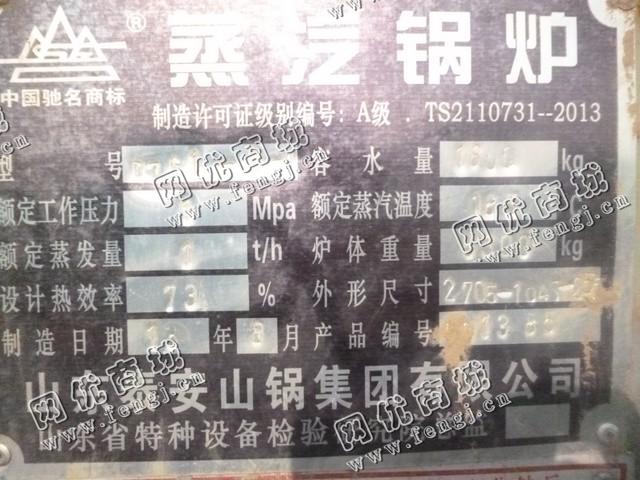 ®
蒸汽锅炉
中国驰名商标
制造许可证级别编号: A级. TS2110731--2013
型号 容水量 kg
额定工作压力 Mpa 额定蒸汽温度
额定蒸发量 1 t/h 炉体重量 kg
设计热效率 73 % 外形尺寸
制造日期 年 8月 产品编号
山东泰安山锅集团有限公司
山东省特种设备检验研究院总监
网优商城
www.fengj.cn
网优商城
www.fengj.cn
网优商城
www.fengj.cn
网优商城
www.fengj.cn